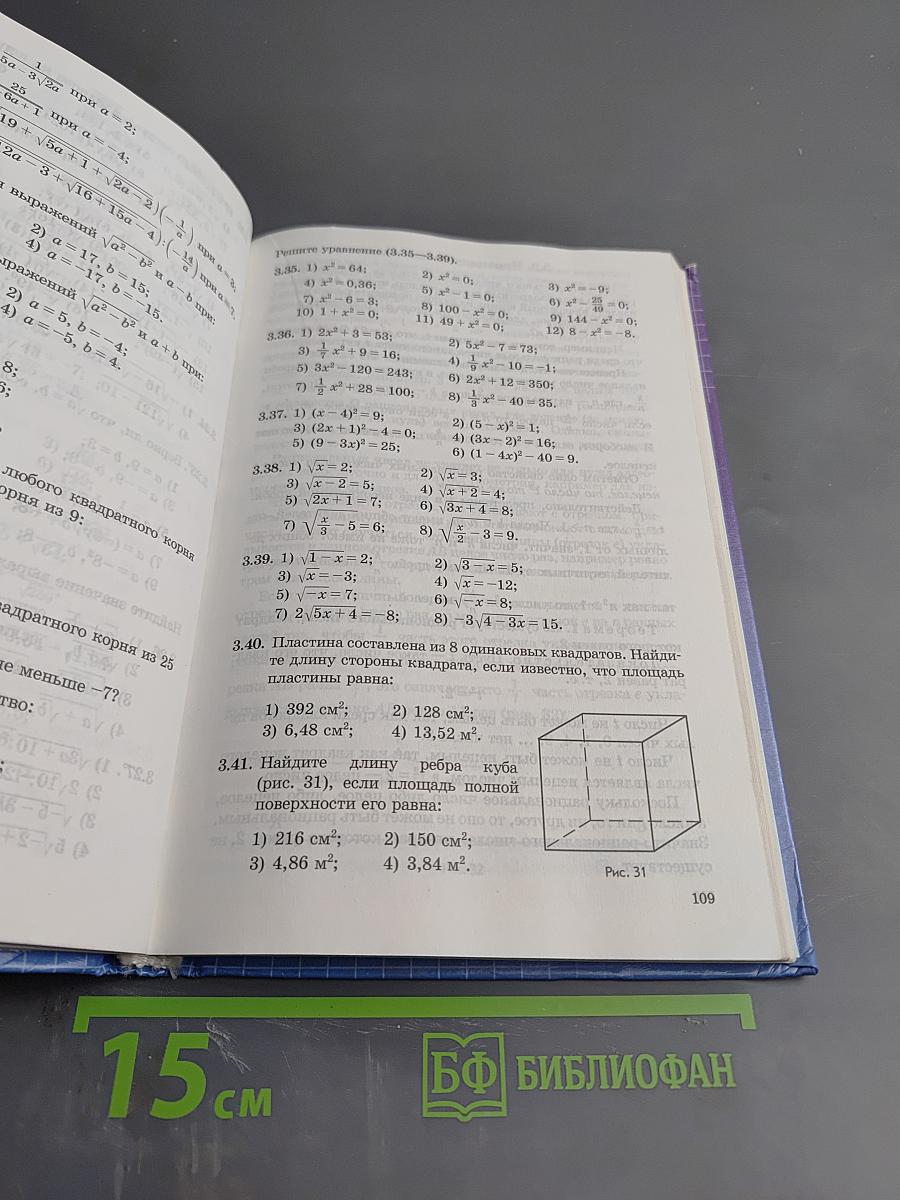 1
5a−3√2a при a = 2;
25
6a+1 при a = −4;
19 + √5a+1 + √2a−2)(−1/a) при a = 3;
2a−3 + √16+15a−4):(−14/a) при a = 7.
выражений √a²−b² и a−b при:
2) a = 17, b = 15;
4) a = −17, b = −15.
√a²−b² и a+b при:
2) a = 5, b = −4;
4) a = −5, b = 4.
8;
любого квадратного
корня из 9:
квадратного корня из 25
меньше −7?
Решите уравнение (3.35—3.39).
3.35. 1) x² = 64; 2) x² = 0; 3) x² = −9;
4) x² = 0,36; 5) x² − 1 = 0; 6) x² − 25/49 = 0;
7) x² − 6 = 3; 8) 100 − x² = 0; 9) 144 − x² = 0;
10) 1 + x² = 0; 11) 49 + x² = 0; 12) 8 − x² = −8.
3.36. 1) 2x² + 3 = 53; 2) 5x² − 7 = 73;
3) 1/7 x² + 9 = 16; 4) 1/9 x² − 10 = −1;
5) 3x² − 120 = 243; 6) 2x² + 12 = 350;
7) 1/2 x² + 28 = 100; 8) 1/3 x² − 40 = 35.
3.37. 1) (x − 4)² = 9; 2) (5 − x)² = 1;
3) (2x + 1)² − 4 = 0; 4) (3x − 2)² = 16;
5) (9 − 3x)² = 25; 6) (1 − 4x)² − 40 = 9.
3.38. 1) √x = 2; 2) √x = 3;
3) √x − 2 = 5; 4) √x + 2 = 4;
5) √2x + 1 = 7; 6) √3x + 4 = 8;
7) √x/3 − 5 = 6; 8) √x/2 − 3 = 9.
3.39. 1) √1 − x = 2; 2) √3 − x = 5;
3) √x = −3; 4) √x = −12;
5) √−x = 7; 6) √−x = 8;
7) 2√5x + 4 = −8; 8) −3√4 − 3x = 15.
3.40. Пластина составлена из 8 одинаковых квадратов. Найди-
те длину стороны квадрата, если известно, что площадь
пластины равна:
1) 392 см²; 2) 128 см²;
3) 6,48 см²; 4) 13,52 м².
3.41. Найдите длину ребра куба
(рис. 31), если площадь полной
поверхности его равна:
1) 216 см²; 2) 150 см²;
3) 4,86 м²; 4) 3,84 м².
Рис. 31
109
15 см
БФ БИБЛИОФАН